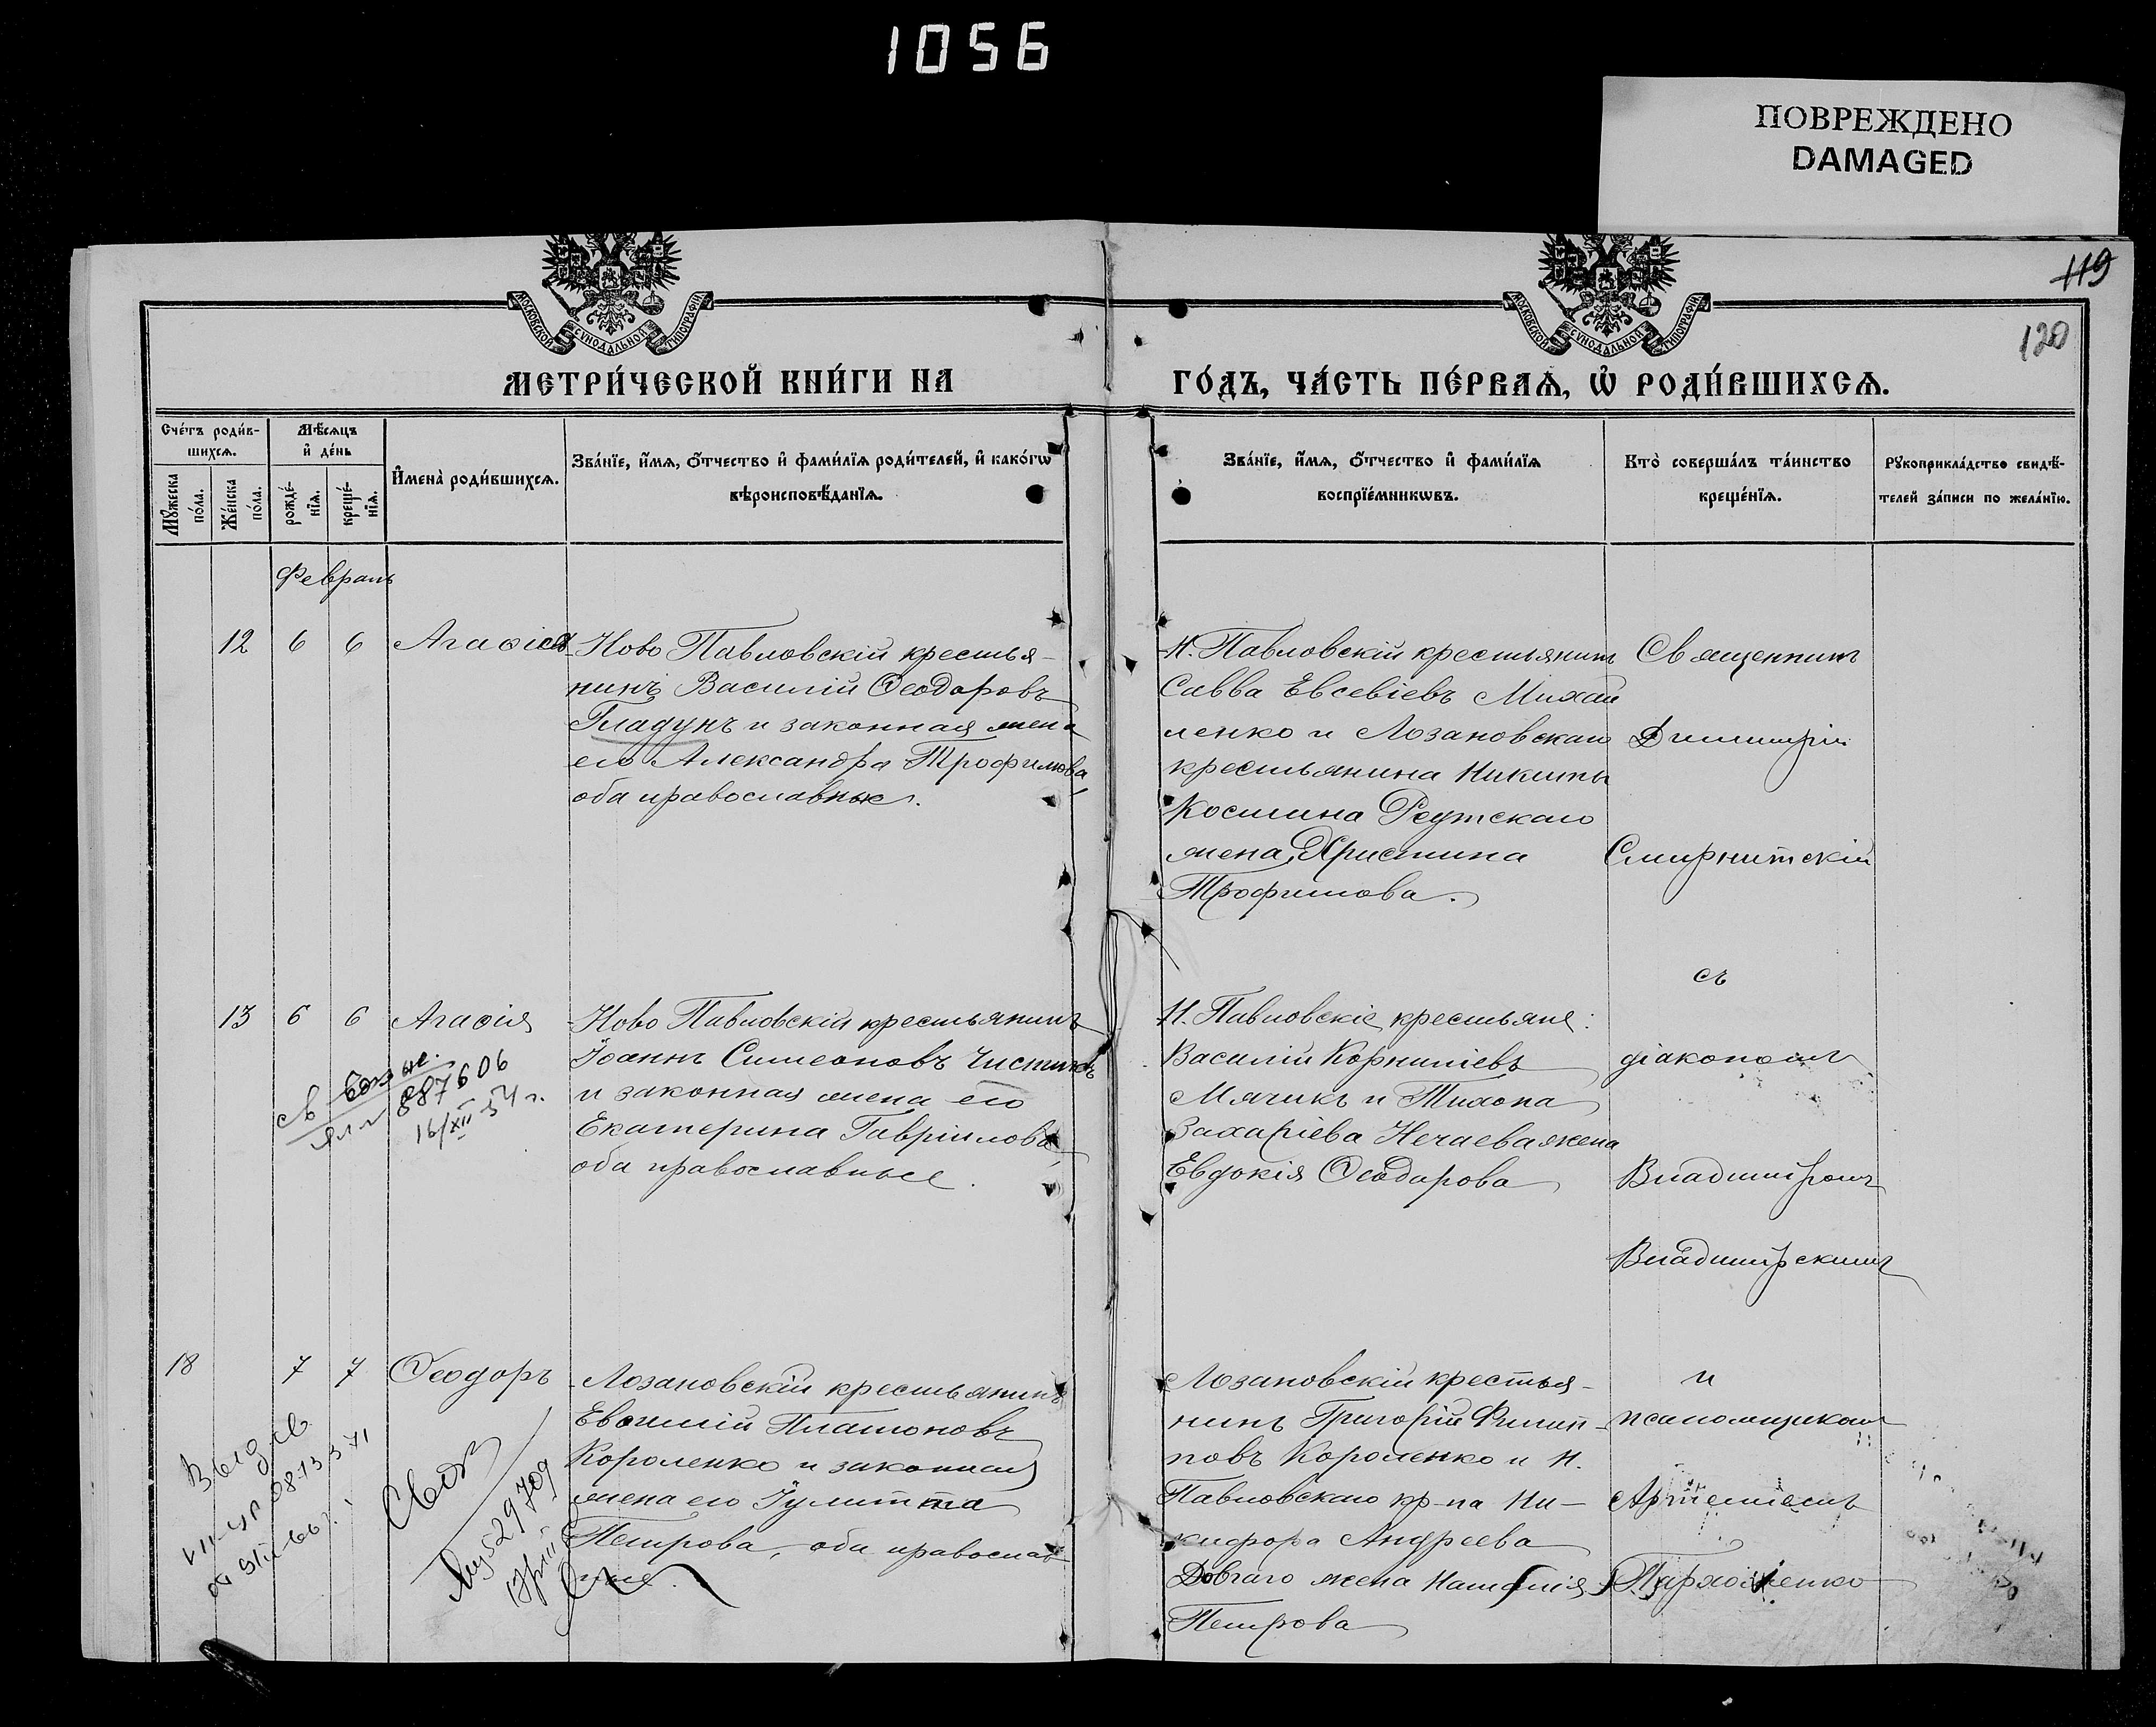 1056
ПОВРЕЖДЕНО
DAMAGED
119
120
МОСКОВСКОЙ СѴНОДАЛЬНОЙ ТИПОГРАФІИ
МОСКОВСКОЙ СѴНОДАЛЬНОЙ ТИПОГРАФІИ
МЕТРИ́ЧЕСКОЙ КНИ́ГИ НА
ГО́ДЪ, ЧА́СТЬ ПЕ́РВАѦ, Ѡ҆ РОДИ́ВШИХСѦ.
Сче́тъ роди́в-
шихсѧ.
Мѣ́сѧцъ
и҆ де́нь
Мꙋ́жеска
по́ла.
Же́нска
по́ла.
рожде́-
нїѧ.
креще́-
нїѧ.
И҆мена̀ роди́вшихсѧ.
Зва́нїе, и҆́мѧ, ѻ҆́тчество и҆ фами́лїѧ роди́телей, и҆ како́гѡ
вѣроисповѣ́данїѧ.
Зва́нїе, и҆́мѧ, ѻ҆́тчество и҆ фами́лїѧ
воспрїе́мникѡвъ.
Кто̀ соверша́лъ та́инство
креще́нїѧ.
Рꙋкоприкла́дство свидѣ́-
телей за́писи по жела́нїю.
Февраль
12 6 6 Агаѳія
Ново Павловскій крестья-
нинъ Василій Ѳеодоровъ
Гладунъ и законная жена
его Александра Трофимова,
оба православные.
Н. Павловскій крестьянинъ
Савва Евсевіевъ Михай
ленко и Лозановскаго
крестьянина Никиты
Космина Реутскаго
жена, Христина
Трофимова.
Священникъ
Димитрій
Смирнитскій
съ
13 6 6 Агаѳія
Ново Павловскій крестьянинъ
Іоаннъ Симеоновъ Чистиковъ
и законная жена его
Екатерина Гавріилова,
оба православные.
Н. Павловскіе крестьяне:
Василій Корниліевъ
Мячикъ и Тихона
Захаріева Нечаева жена
Евдокія Ѳеодорова
діакономъ
Владиміромъ
Владимірскимъ
887606
16/XII 54 г.
18 7 7 Ѳеодоръ
Лозановскій крестьянинъ
Евѳимій Платоновъ
Короленко и законная
жена его Іулитта
Петрова, оба православ
ные.
Лозановскій крестья-
нинъ Григорій Филип-
повъ Короленко и Н.
Павловскаго кр-на Ни-
кифора Андреева
Довгаго жена Наталія
Петрова
и
псаломщикомъ
Артеміемъ
Пархоменко
Выдав
529709